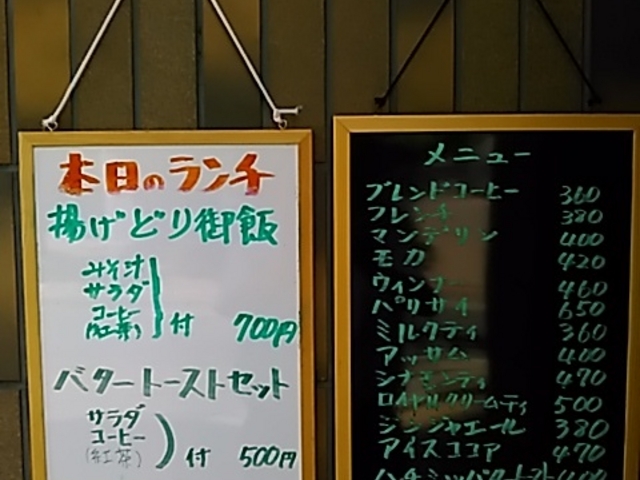 本日のランチ
揚げどり御飯
みそ汁
サラダ
コーヒー
(紅茶)
付 700円
バタートーストセット
サラダ
コーヒー
(紅茶)
付 500円
メニュー
ブレンドコーヒー 360
フレンチ 380
マンデリン 400
モカ 420
ウィンナー 460
パリサイ 650
ミルクティ 360
アッサム 400
シナモンティ 470
ロイヤルクリームティ 500
ジンジャエール 380
アイスココア 470